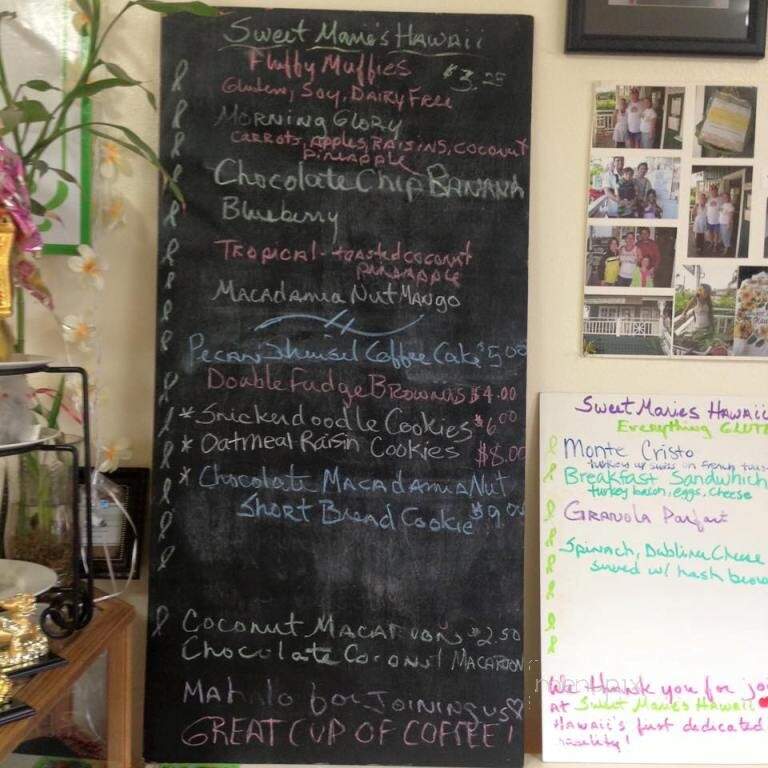 Sweet Marie's Hawaii
Fluffy Muffies $3.25
Gluten, Soy, Dairy Free
Morning Glory
Carrots, Apples, Raisins, Coconut
Pineapple
Chocolate Chip Banana
Blueberry
Tropical - toasted coconut
pineapple
Macadamia Nut Mango
Pecan Coffee Cake $5.00
Double Fudge Brownies $4.00
*Snickerdoodle Cookies $6.00
*Oatmeal Raisin Cookies $8.00
*Chocolate Macadamia Nut
Short Bread Cookie $9.00
Coconut Macaroon $2.50
Chocolate Coconut Macaroon
Mahalo for Joining us
GREAT CUP OF COFFEE!
Sweet Maries Hawaii
Everything GLUT
Monte Cristo
turkey w swiss on french toas
Breakfast Sandwhich
turkey bacon, eggs, cheese
Granola Parfait
Spinach, Dubliner Cheese
served w/ hash brow
We thank you for joi
at Sweet Maries Hawaii
Hawaii's first dedicated
facility!